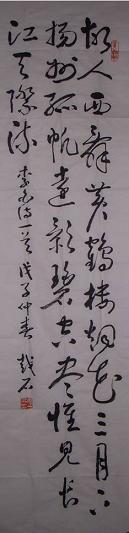 故人西辭黃鶴樓烟花三月下
揚州孤帆遠影碧空盡惟見長
江天際流
李白诗一首 戊子仲春